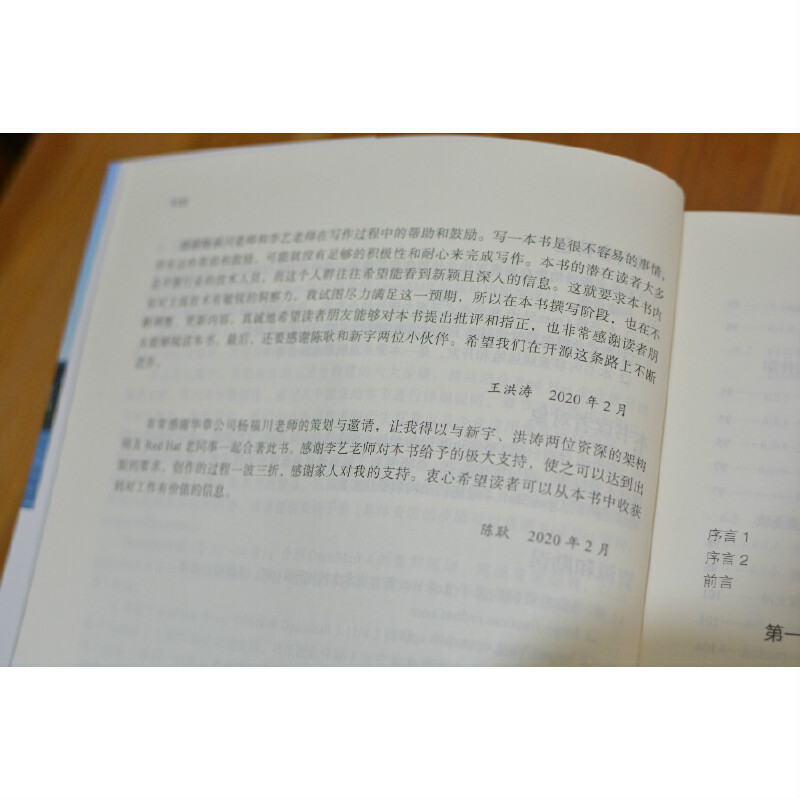 感谢杨福川老师和李艺老师在写作过程中的帮助和鼓励。写一本书是很不容易的事情,
没有这些帮助和鼓励,可能就没有足够的积极性和耐心来完成写作。本书的潜在读者大多
是开源行业的技术人员,而这个人群往往希望能看到新颖且深入的信息。这就要求本书内
容对主流技术有敏锐的洞察力。我试图尽力满足这一预期,所以在本书撰写阶段,也在不
断调整、更新内容。真诚地希望读者朋友能够对本书提出批评和指正,也非常感谢读者朋
友能够阅读本书。最后,还要感谢陈耿和新宇两位小伙伴。希望我们在开源这条路上不断
提升。
王洪涛 2020 年 2 月
非常感谢华章公司杨福川老师的策划与邀请,让我得以与新宇、洪涛两位资深的架构
师及 Red Hat 老同事一起合著此书。感谢李艺老师对本书给予的极大支持,使之可以达到出
版的要求。创作的过程一波三折,感谢家人对我的支持。衷心希望读者可以从本书中收获
到对工作有价值的信息。
陈耿 2020 年 2 月
序言 1
序言 2
前言
第一